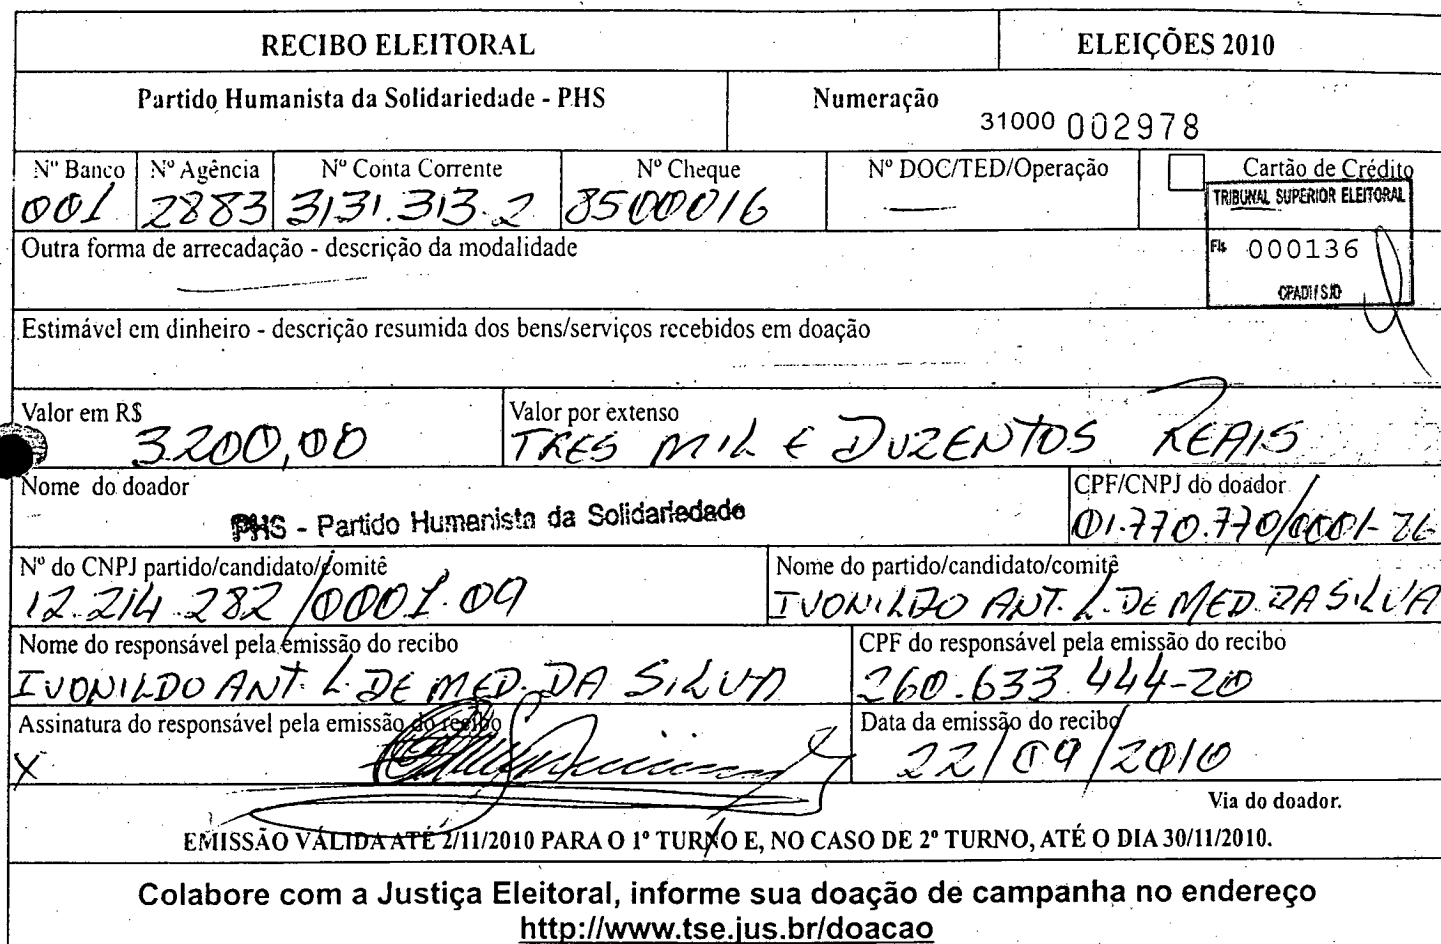 RECIBO ELEITORAL ELEIÇÕES 2010
Partido Humanista da Solidariedade - PHS Numeração
31000 002978
Nº Banco Nº Agência Nº Conta Corrente Nº Cheque Nº DOC/TED/Operação Cartão de Crédito
001 2883 3131.313-2 8500016 —
TRIBUNAL SUPERIOR ELEITORAL
Fls 000136
CPADI/SJD
Outra forma de arrecadação - descrição da modalidade
Estimável em dinheiro - descrição resumida dos bens/serviços recebidos em doação
Valor em R$ Valor por extenso
3.200,00 TRES MIL E DUZENTOS REAIS
Nome do doador CPF/CNPJ do doador
PHS - Partido Humanista da Solidariedade 01.770.770/0001-26
Nº do CNPJ partido/candidato/comitê Nome do partido/candidato/comitê
12.214.282/0001.09 IVONILDO ANT. L. DE MED. DA SILVA
Nome do responsável pela emissão do recibo CPF do responsável pela emissão do recibo
IVONILDO ANT. L. DE MED. DA SILVA 260.633.444-20
Assinatura do responsável pela emissão do recibo Data da emissão do recibo
X 22/09/2010
Via do doador.
EMISSÃO VÁLIDA ATÉ 2/11/2010 PARA O 1º TURNO E, NO CASO DE 2º TURNO, ATÉ O DIA 30/11/2010.
Colabore com a Justiça Eleitoral, informe sua doação de campanha no endereço
http://www.tse.jus.br/doacao